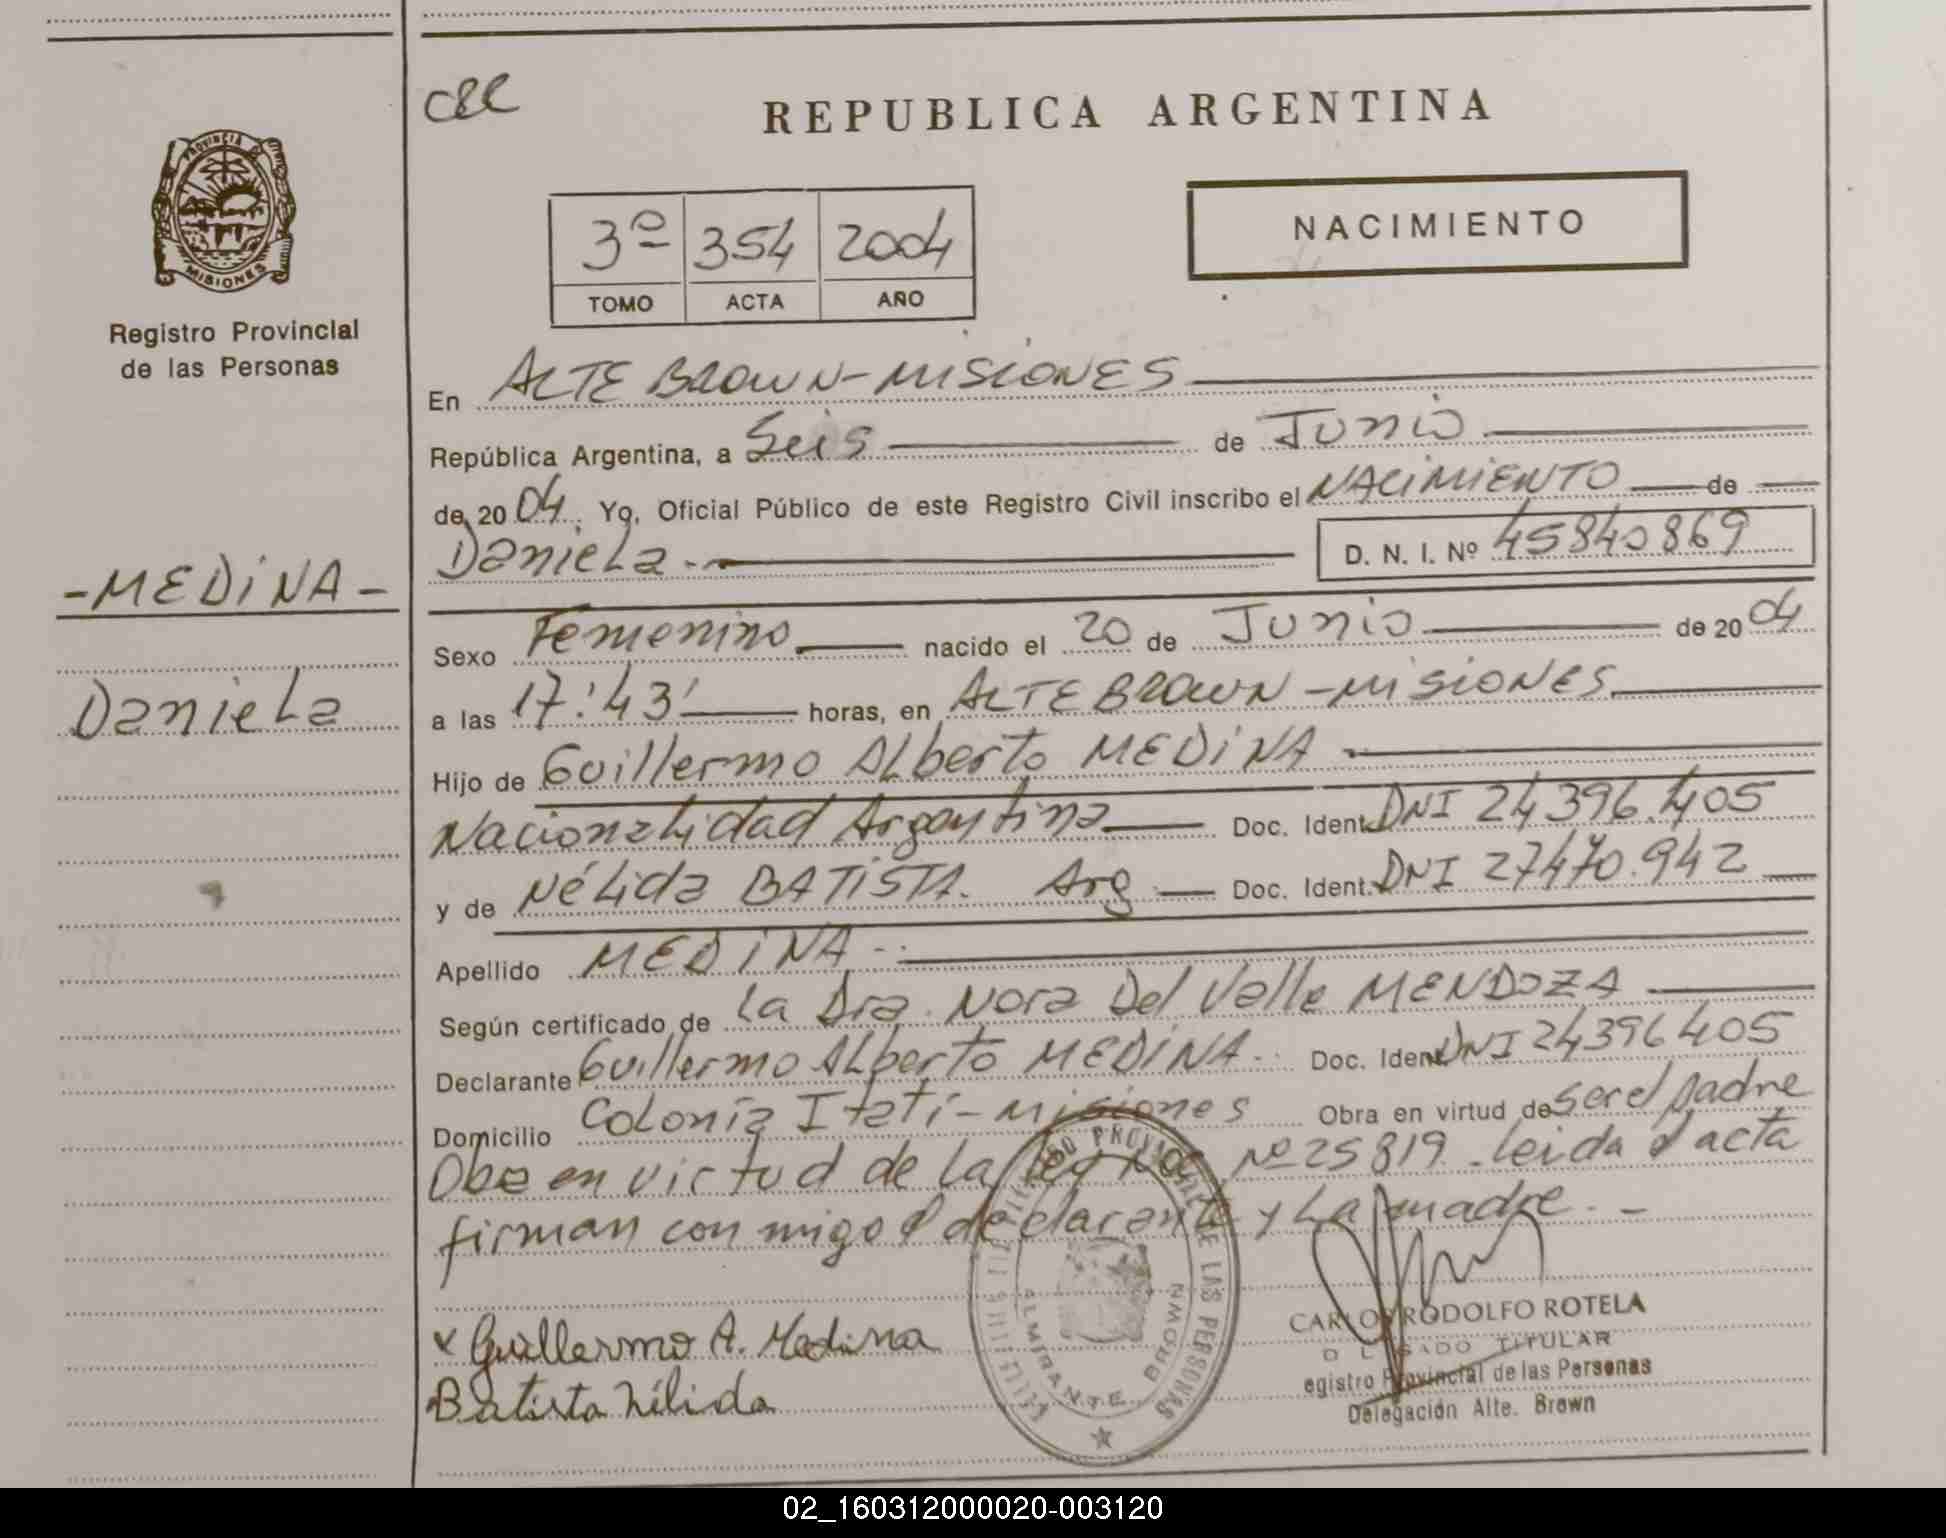 CRC
REPUBLICA ARGENTINA
PROVINCIA DE
MISIONES
Registro Provincial
de las Personas
3º 354 2004
TOMO ACTA AÑO
NACIMIENTO
En ALTE BROWN-MISIONES
República Argentina, a Seis de Junio
de 20 04. Yo, Oficial Público de este Registro Civil inscribo el NACIMIENTO de
Daniela.- D. N. I. Nº 45840869
-MEDiNA-
Daniela
Sexo Femenino nacido el 20 de Junio de 20 04
a las 17:43' horas, en ALTE BROWN-MISIONES
Hijo de Guillermo ALberto MEDiNA
Nacionalidad Argentina Doc. Ident. DNI 24396.405
y de NéLida BATiSTA. Arg Doc. Ident. DNI 27470.942
Apellido MEDiNA-
Según certificado de La Dra. Nora Del Valle MENDOZA
Declarante Guillermo ALberto MEDiNA. Doc. Ident. DNI 24396405
Domicilio Colonia Itatí-Misiones Obra en virtud de ser el padre
Oba en virtud de La Ley Nac. Nº 25819. Leida el acta
firman con migo el declarante y La madre. -
x Guillermo A. Medina
Batista Nélida
REGISTRO PROVINCIAL DE LAS PERSONAS
ALMIRANTE BROWN
CARLOS RODOLFO ROTELA
DELEGADO TITULAR
egistro Provincial de las Personas
Delegación Alte. Brown
02_160312000020-003120